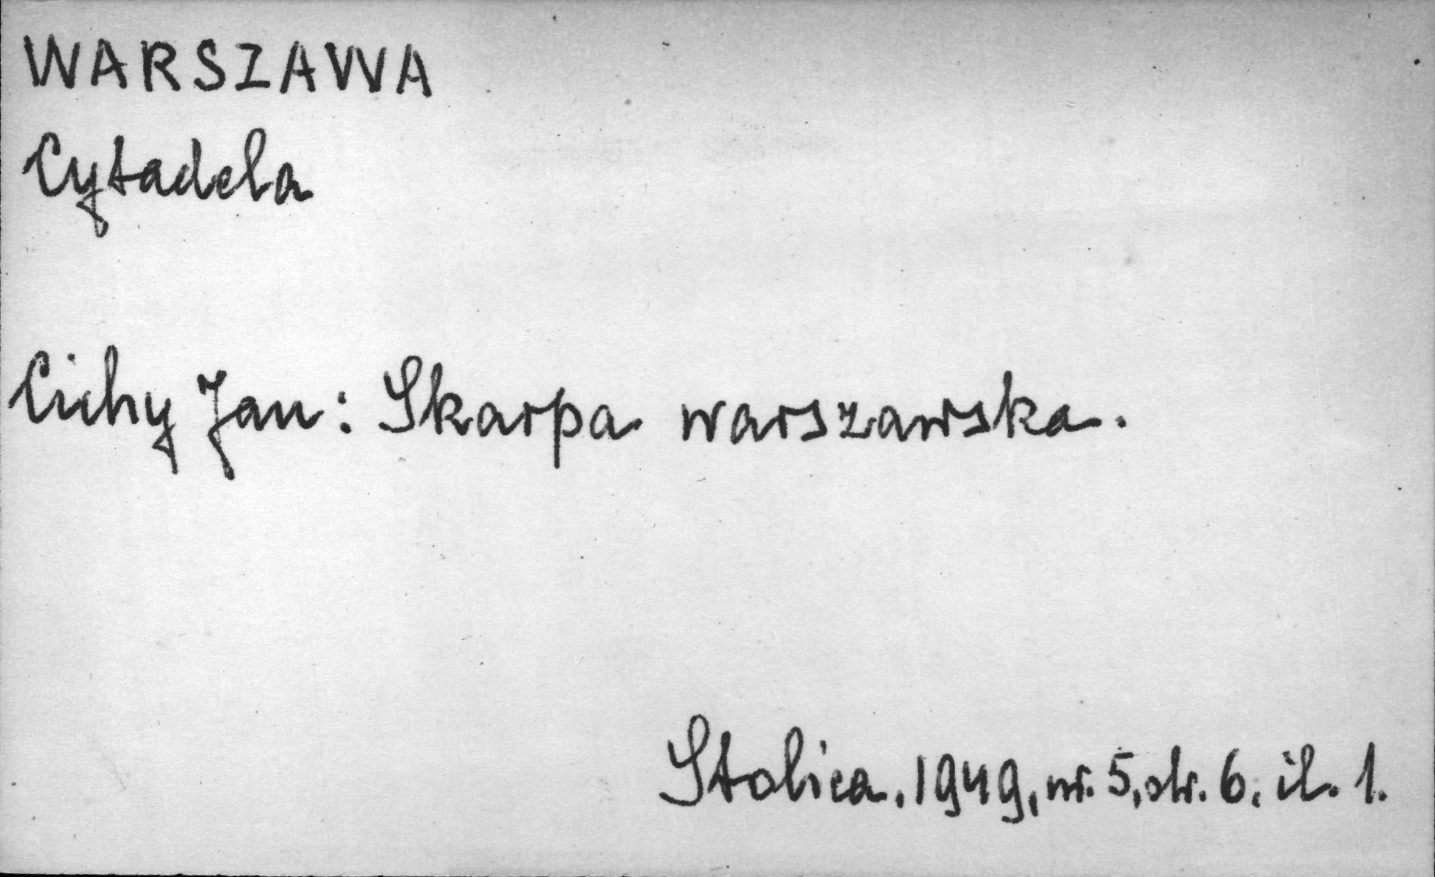 WARSZAWA
Cytadela
Cichy Jan: Skarpa warszawska.
Stolica, 1949, nr. 5, str. 6, il. 1.